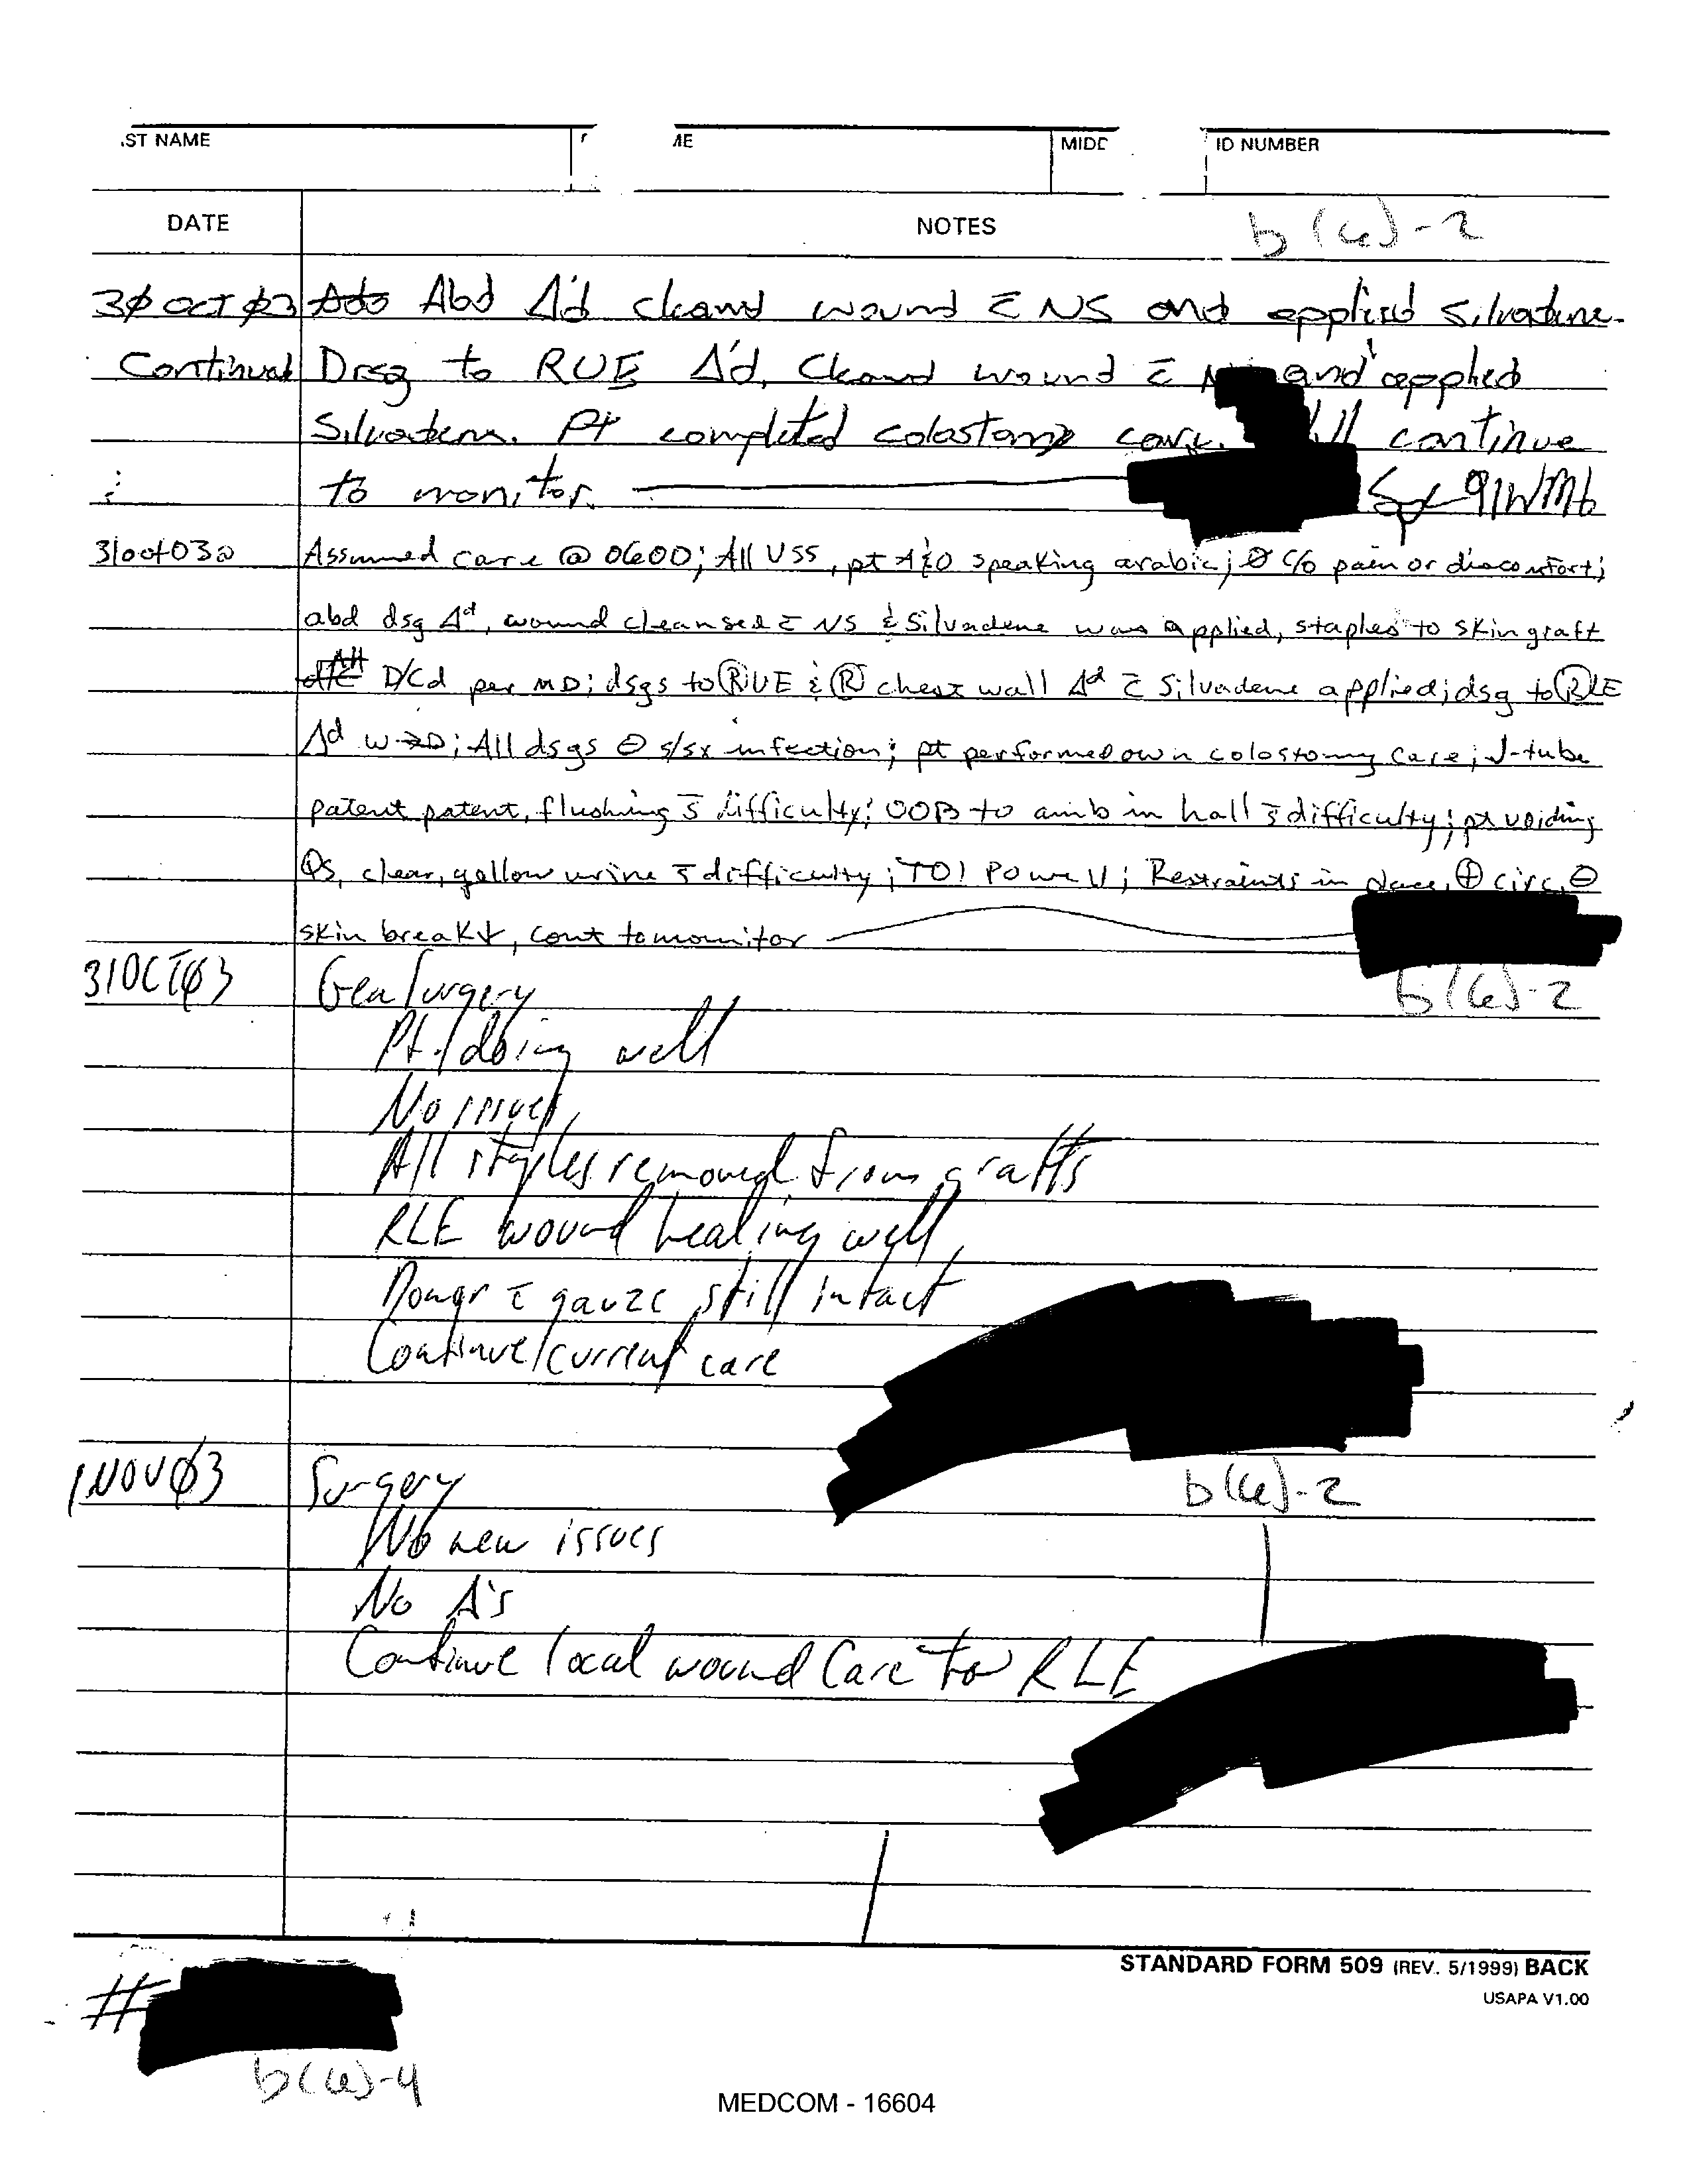 ST NAME ME MIDD ID NUMBER
DATE NOTES b(6)-2
3Ø OCT Ø3 Abd Δ'd cleand wound c̄ NS and applied Silvadene.
Continued Drsg to RUE Δ'd, Cleand wound c̄ and applied
Silvadene. Pt completed colostomy care. continue
to monitor. Spc 91WM6
31Oct03 Assumed care @ 0600; All VSS, pt A&O speaking arabic; Ø c/o pain or discomfort;
abd dsg Δd, wound cleansed c̄ NS & Silvadene was applied, staples to skin graft
D/Cd per MD; dsgs to Ⓡ UE & Ⓡ chest wall Δd c̄ Silvadene applied; dsg to Ⓡ LE
Δd W→D; All dsgs ⊖ s/sx infection; pt performed own colostomy care; J-tube
patent patent, flushing s̄ difficulty; OOB to amb in hall s̄ difficulty; pt voiding
QS, clear, yellow urine s̄ difficulty; Restraints in place, ⊕ circ, ⊖
skin break↓, cont to monitor
b(6)-2
31OCTØ3 Gen Surgery
Pt. doing well
No issues
All staples removed from grafts
RLE wound healing well
Donor c̄ gauze still intact
Continue current care
b(6)-2
1NOVØ3 Surgery
No new issues
No Δ's
Continue local wound care to RLE
STANDARD FORM 509 (REV. 5/1999) BACK
USAPA V1.00
#
b(6)-4
MEDCOM - 16604